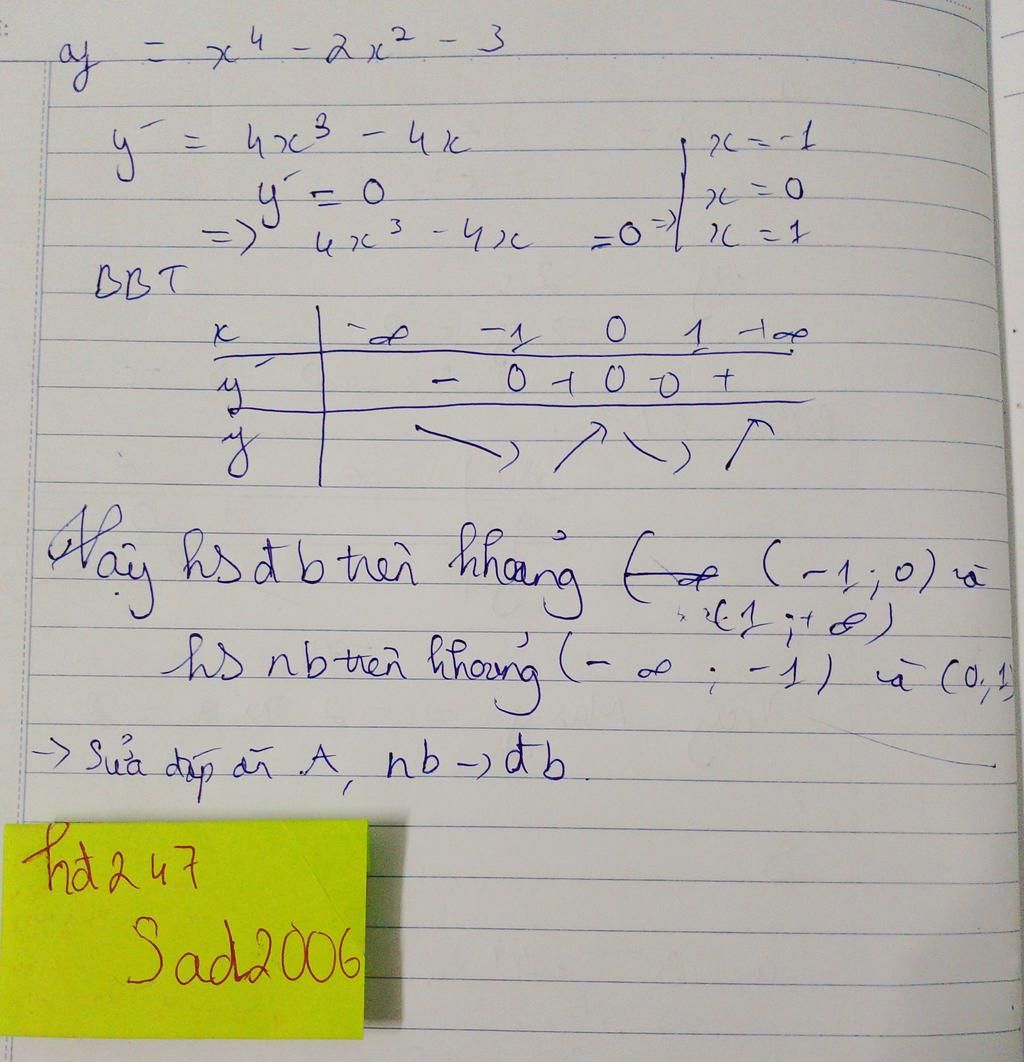 y = x⁴ - 2x² - 3
y' = 4x³ - 4x
y' = 0
=> 4x³ - 4x = 0 => x = -1
x = 0
x = 1
BBT
x -∞ -1 0 1 +∞
y' - 0 + 0 - 0 +
y
Vậy hs đb trên khoảng (-1; 0) và
(1; +∞)
hs nb trên khoảng (-∞; -1) và (0; 1)
-> Sửa đáp án A, nb -> đb.
hđ247
Sad2006